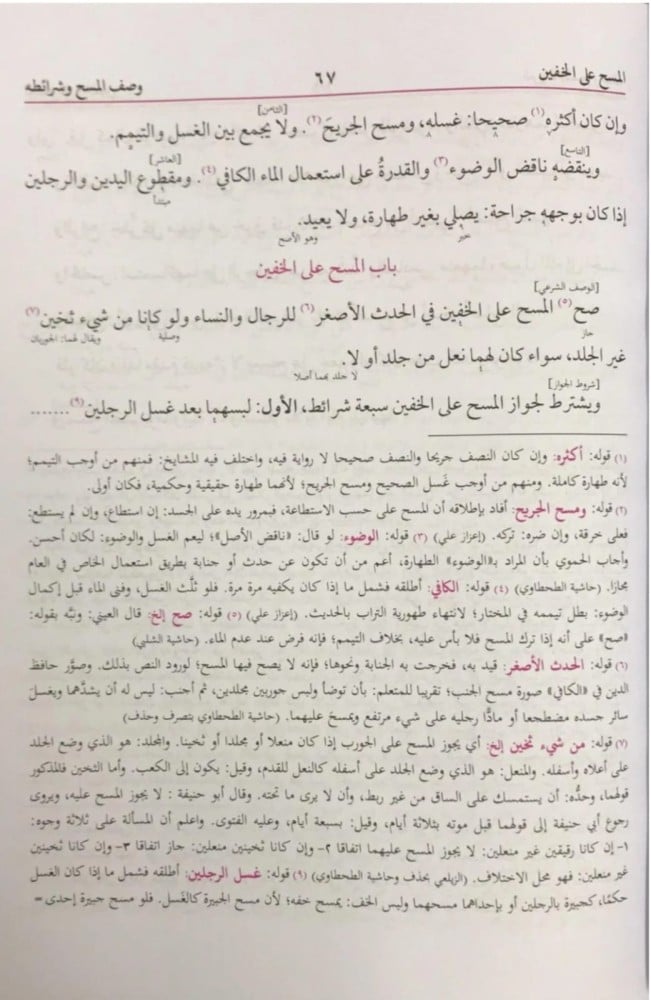 المسح على الخفين ٦٧ وصف المسح وشرائطه
[الثامن]
وإن كان أكثره(١) صحيحا: غسله، ومسح الجريحَ(٢). ولا يجمع بين الغسل والتيمم.
[التاسع] [العاشر]
وينقضه ناقض الوضوء(٣) والقدرةُ على استعمال الماء الكافي(٤). ومقطوع اليدين والرجلين
مبتدأ
إذا كان بوجهه جراحة: يصلي بغير طهارة، ولا يعيد.
خبر وهو الأصح
باب المسح على الخفين
[الوصف الشرعي]
صح(٥) المسح على الخفين في الحدث الأصغر(٦) للرجال والنساء ولو كانا من شيء ثخين(٧)
جاز وصلية ويقال لهما: الجوربان
غير الجلد، سواء كان لهما نعل من جلد أو لا.
لا جلد بهما أصلا
[شروط الجواز]
ويشترط لجواز المسح على الخفين سبعة شرائط، الأول: لبسهما بعد غسل الرجلين(٩) .......
(١) قوله: أكثره: وإن كان النصف جريحا والنصف صحيحا لا رواية فيه، واختلف فيه المشايخ: فمنهم من أوجب التيمم؛
لأنه طهارة كاملة. ومنهم من أوجب غَسل الصحيح ومسح الجريح؛ لأنهما طهارة حقيقية وحكمية، فكان أولى.
(٢) قوله: ومسح الجريح: أفاد بإطلاقه أن المسح على حسب الاستطاعة، فبمرور يده على الجسد: إن استطاع، وإن لم يستطع:
فعلى خرقة، وإن ضره: تركه. (إعزاز علي) (٣) قوله: الوضوء: لو قال: «ناقض الأصل»؛ ليعم الغسل والوضوء: لكان أحسن.
وأجاب الحموي بأن المراد بـ«الوضوء» الطهارة، أعم من أن تكون عن حدث أو جنابة بطريق استعمال الخاص في العام
مجازا. (حاشية الطحطاوي) (٤) قوله: الكافي: أطلقه فشمل ما إذا كان يكفيه مرة مرة. فلو ثلَّث الغسل، وفنى الماء قبل إكمال
الوضوء: بطل تيممه في المختار؛ لانتهاء طهورية التراب بالحديث. (إعزاز علي) (٥) قوله: صح إلخ: قال العيني: ونبَّه بقوله:
«صح» على أنه إذا ترك المسح فلا بأس عليه، بخلاف التيمم؛ فإنه فرض عند عدم الماء. (حاشية الشلبي)
(٦) قوله: الحدث الأصغر: قيد به، فخرجت به الجنابة ونحوها؛ فإنه لا يصح فيها المسح؛ لورود النص بذلك. وصوَّر حافظ
الدين في «الكافي» صورة مسح الجنب؛ تقريبا للمتعلم: بأن توضأ ولبس جوربين مجلدين، ثم أجنب: ليس له أن يشدَّهما ويغسل
سائر جسده مضطجعا أو مادًّا رجليه على شيء مرتفع ويمسحَ عليهما. (حاشية الطحطاوي بتصرف وحذف)
(٧) قوله: من شيء ثخين إلخ: أي يجوز المسح على الجورب إذا كان منعلا أو مجلدا أو ثخينا. والمجلد: هو الذي وضع الجلد
على أعلاه وأسفله. والمنعل: هو الذي وضع الجلد على أسفله كالنعل للقدم، وقيل: يكون إلى الكعب. وأما الثخين فالمذكور
قولهما، وحدُّه: أن يستمسك على الساق من غير ربط، وأن لا يرى ما تحته. وقال أبو حنيفة : لا يجوز المسح عليه، ويروى
رجوع أبي حنيفة إلى قولهما قبل موته بثلاثة أيام، وقيل: بسبعة أيام، وعليه الفتوى. واعلم أن المسألة على ثلاثة وجوه:
١- إن كانا رقيقين غير منعلين: لا يجوز المسح عليهما اتفاقا ٢- وإن كانا ثخينين منعلين: جاز اتفاقا ٣- وإن كانا ثخينين
غير منعلين: فهو محل الاختلاف. (الزيلعي بحذف وحاشية الطحطاوي) (٩) قوله: غسل الرجلين: أطلقه فشمل ما إذا كان الغسل
حكمًا، كجبيرة بالرجلين أو بإحداهما مسحهما ولبس الخف: يمسح خفه؛ لأن مسح الجبيرة كالغَسل. فلو مسح جبيرة إحدى=